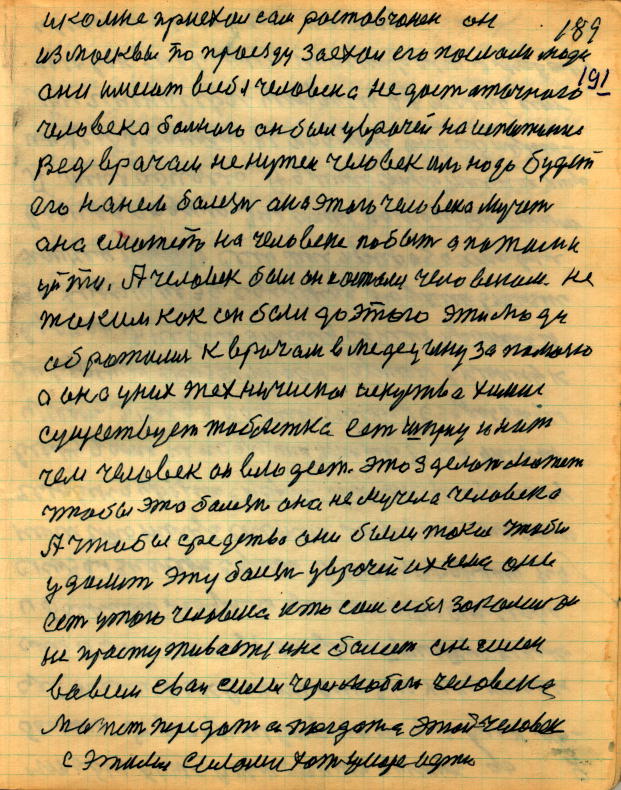 189
и ко мне приехол сам ростовчонен он
из москвы по проезду заехол его послали люди
191
они имеют всебя человека не достаточного
человека болного он был уврачей на испытание
вед врачам не нужен человек им надо будет
его на нем болезн она этого человека мучет
она сможет на человеке побыт а потом и
уйти. А человек был он и остался человеком не
таким как он был до этого эти люди
обротилис к врачам в медецыну за помощю
а она у них техническая искуства химие
существует таблетка ест шприц и нит
чем человек он владеет. это зделат может
чтобы это болезн она не мучела человека
А чтобы средства они были токие чтобы
удалит эту болезн уврачей их нема они
ест у того человека кто сам себя закалил он
не простуживаетс и не болеет он силен
всвои силы через любого человека
может передат с поздота этот человек
с этими силами хот у море иди